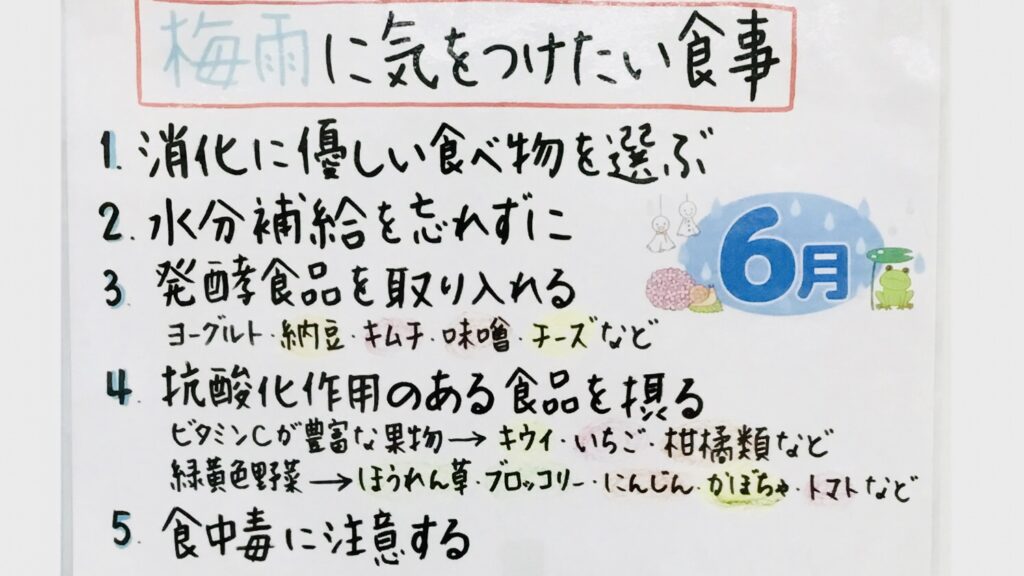 梅雨に気をつけたい食事
1. 消化に優しい食べ物を選ぶ
2. 水分補給を忘れずに
3. 発酵食品を取り入れる
ヨーグルト・納豆・キムチ・味噌・チーズなど
6月
4. 抗酸化作用のある食品を摂る
ビタミンCが豊富な果物→キウイ・いちご・柑橘類など
緑黄色野菜→ほうれん草・ブロッコリー・にんじん・かぼちゃ・トマトなど
5. 食中毒に注意する